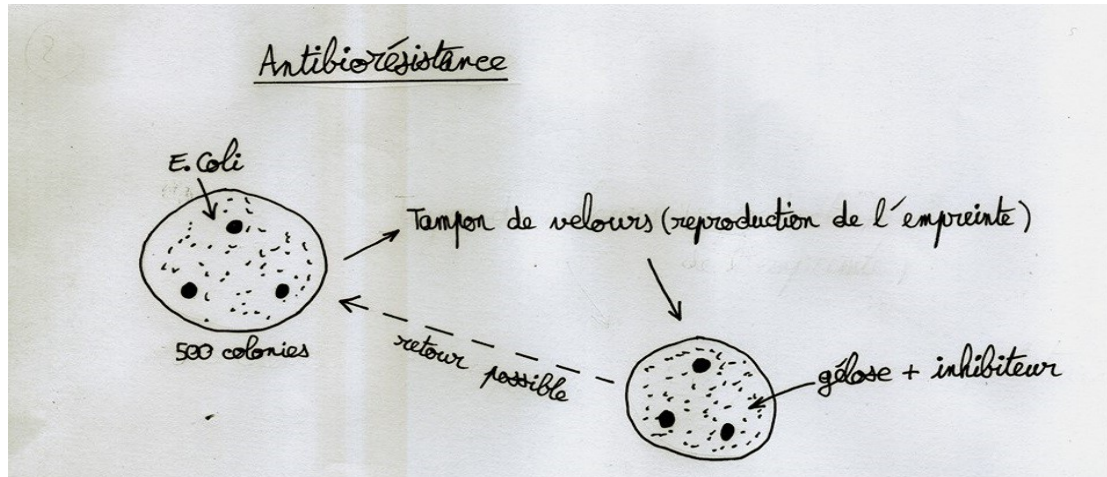 Antibiorésistance
E. Coli
Tampon de velours (reproduction de l'empreinte)
500 colonies
retour possible
gélose + inhibiteur